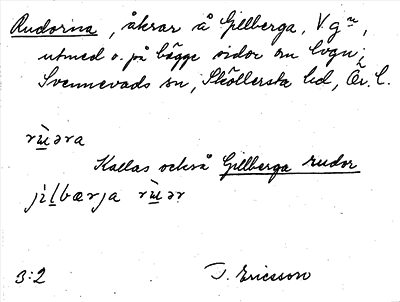 Rudorna, åkrar å Gillberga, V. gn,
utmed o. på bägge sidor om vägen;
Svennevads sn, Sköllersta hd, Ör. l.
rùəra
Kallas också Gillberga rudor
jìlbærja rùər
3:2
J. Ericsson